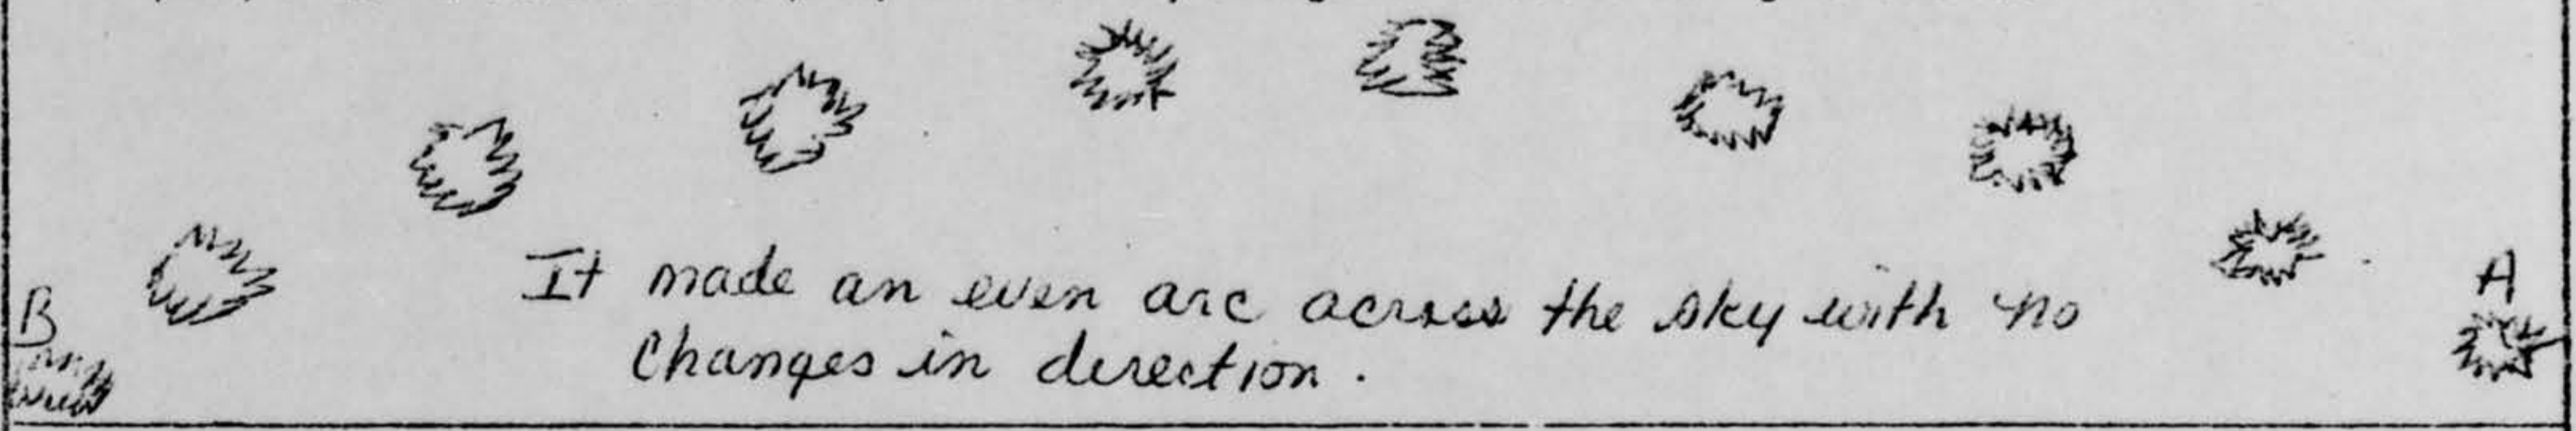 B
A
It made an even arc across the sky with no
Changes in direction.